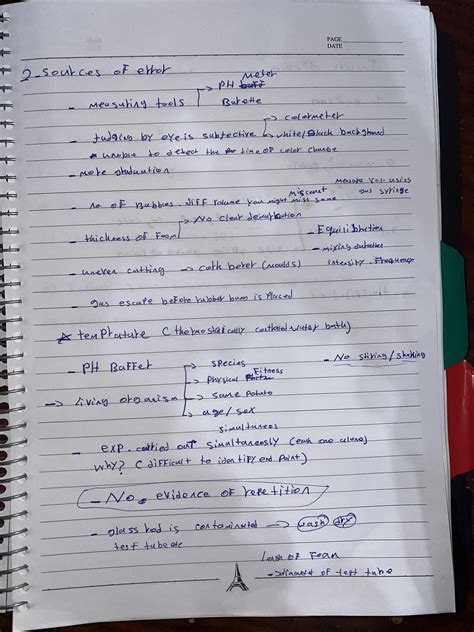 PAGE
DATE
2-sources of error
- measuring tools → PH meter
→ Burette
- Judging by eye is subjective → colormeter
→ white/black background
* unable to detect the time of color change
- more graduation
- no of Bubbles. diff volume you might miss some
miscount
measure vol. using
gas syringe
- thickness of Foam → No clear demarkation
- Equilibration
- mixing duration
intensity. Frequency
- uneven cutting → cork borer (moulds)
gas escape before rubber bung is placed
* temprature (thermostatically controlled water bath)
- PH Buffer
- No stiring/shaking
→ living organism → species
→ Physical Fitness
→ same potato
→ age/sex
simultaneous
- exp. carried out simultaneously (each one alone)
why? (difficult to identify end point)
- No evidence of repetition
- glass rod is contaminated → wash dry
test tube etc
of Foam
- diameter of test tube